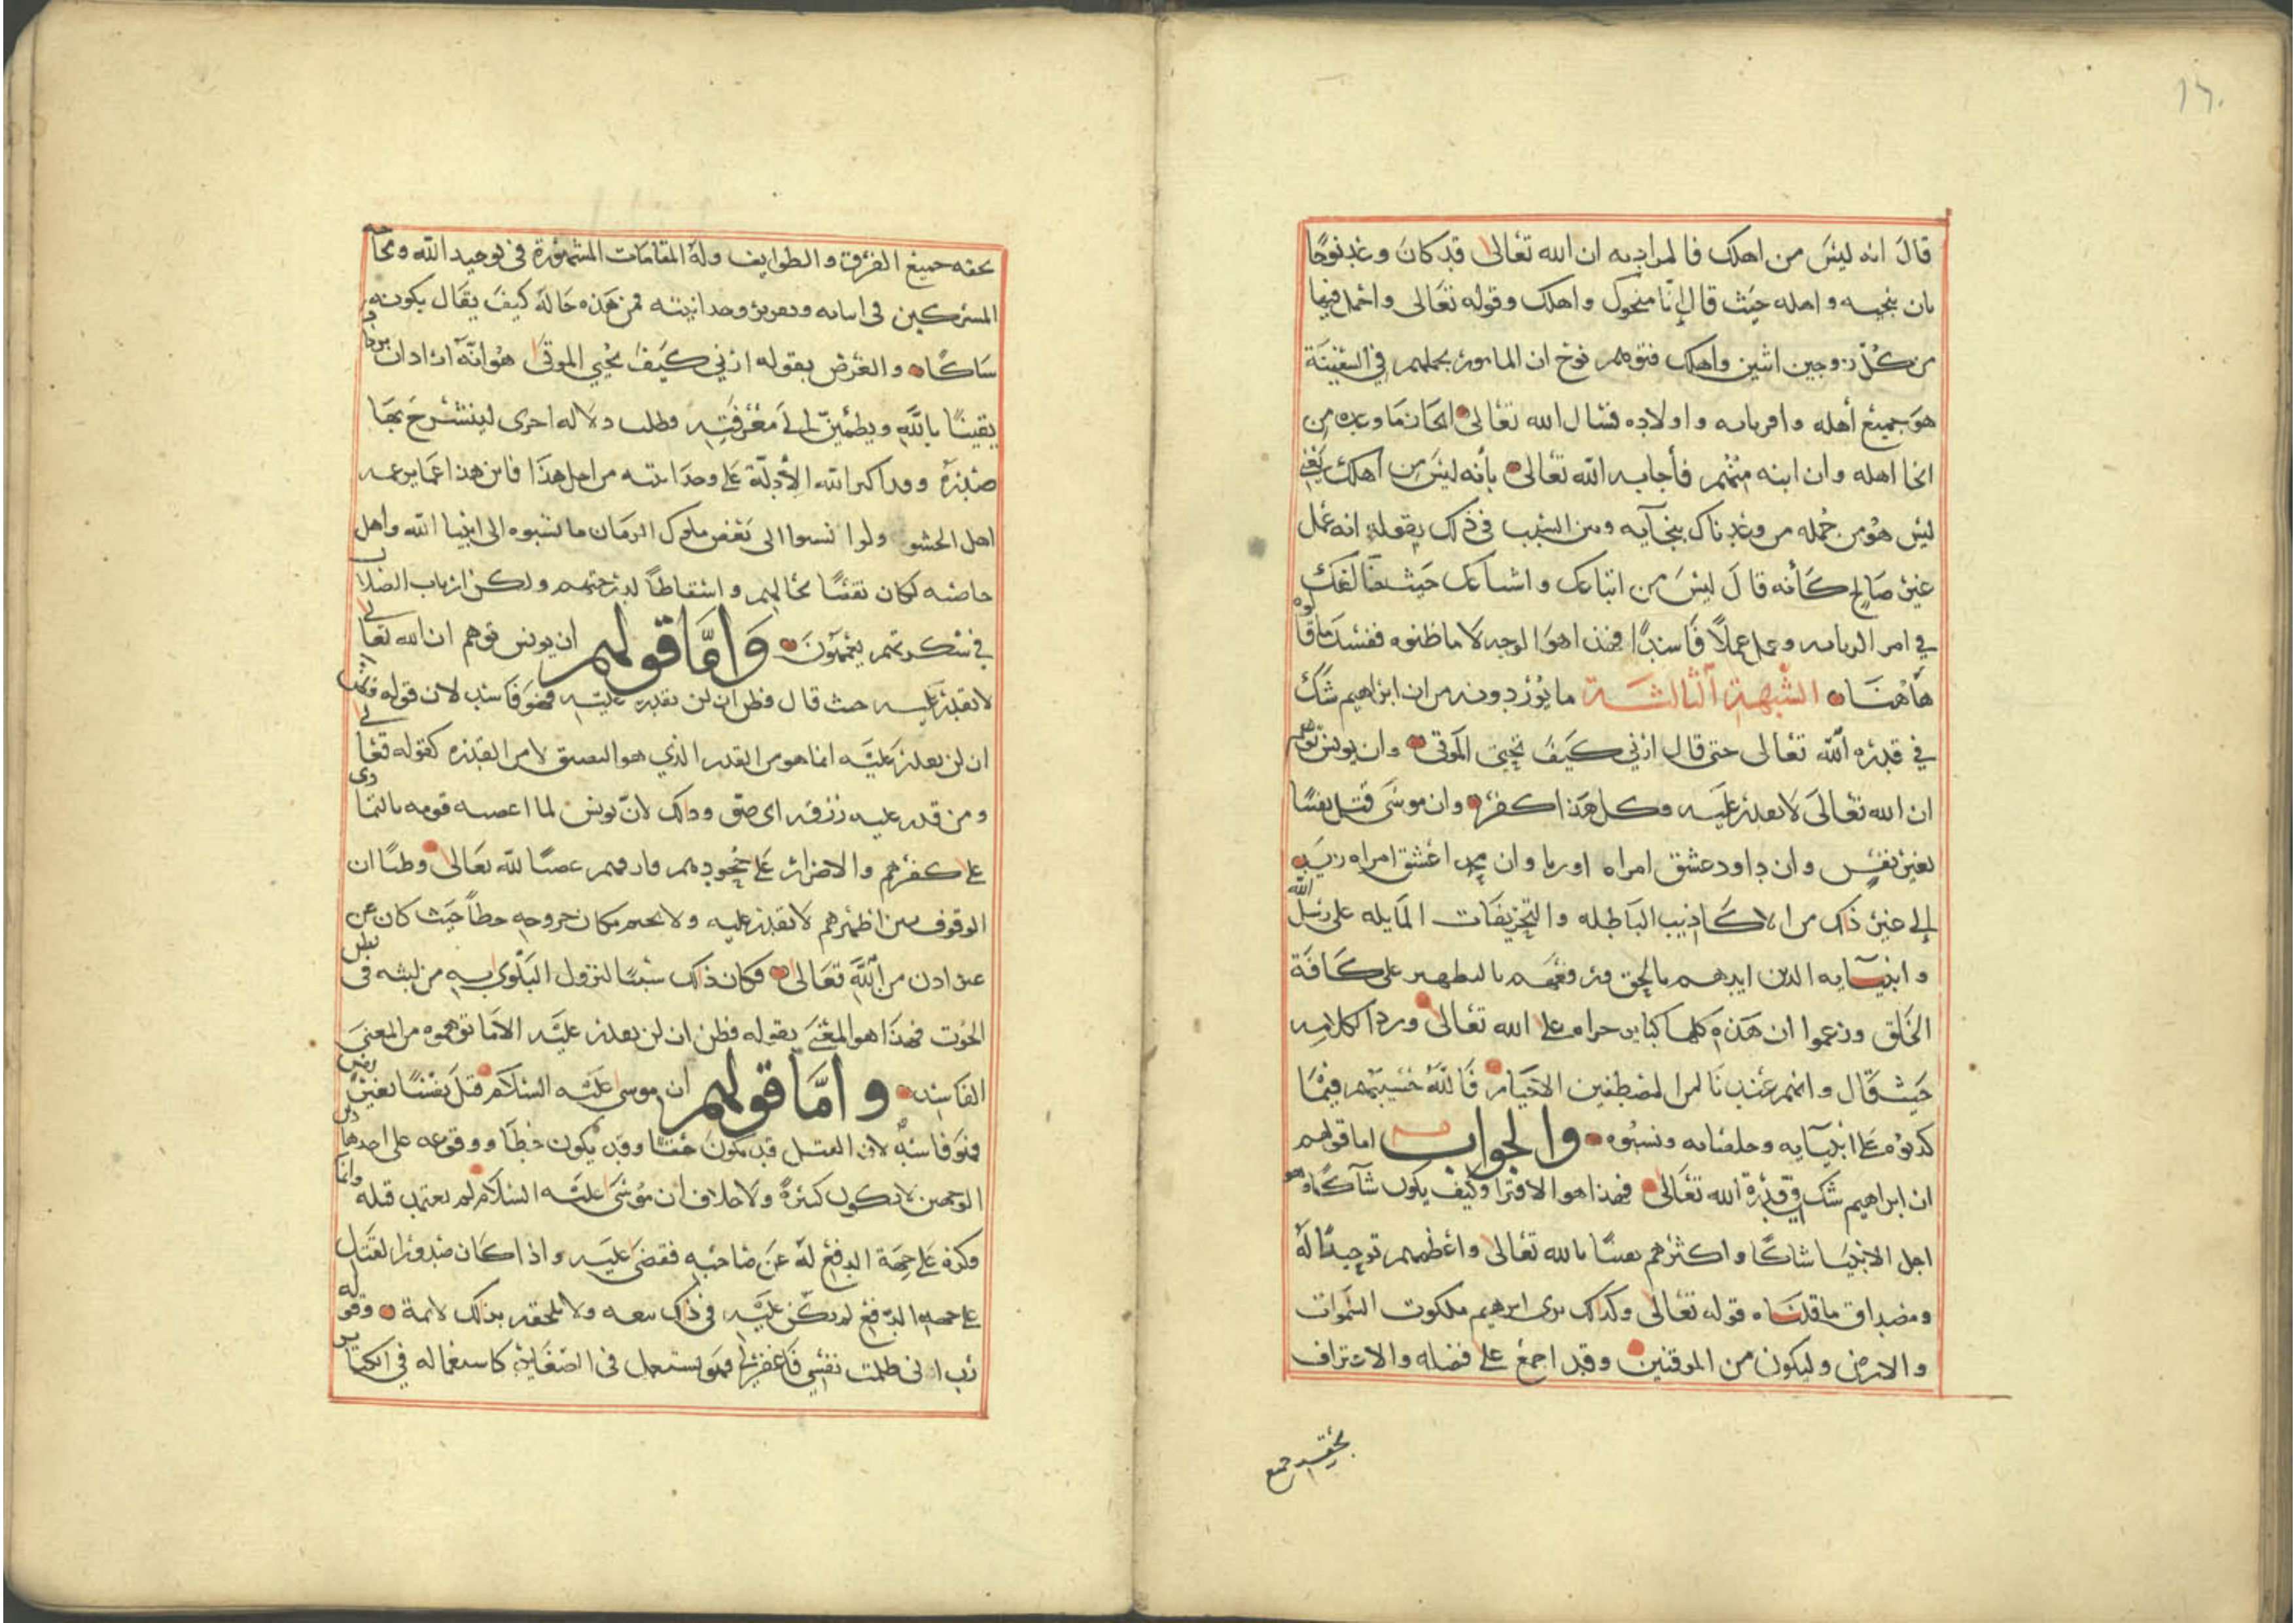 ١٦٠
قال انه ليس من اهلك فالمراد به ان الله تعالى قد كان وعد نوحًا
بان ينجيه واهله حيث قال إنّا منجوك واهلك وقوله تعالى واحمل فيها
من كلّ زوجين اثنين واهلك فتوهم نوح ان المأمور بحملهم في السفينة
هو جميع أهله واقربايه واولاده فسال الله تعالى انجاز ما وعده من
انجا اهله وان ابنه منهم فأجابه الله تعالى بأنه ليس من اهلك يعني
ليس هو من جمله من وعدناك بنجآيه وبين السبب في ذلك بقوله انه عمل
غير صالح كأنه قال ليس من اتباعك واشياعك حيث خالفك
في امر الديانه وعمل عملاً فاسدًا فهذا هو الوجه لا ما ظنوه ففسد ما قالوه
هاهنا الشبهة الثالثة ما يوردونه من ان ابراهيم شك
في قدره الله تعالى حتى قال ارني كيف تحيي الموتى وان يونس توهم
ان الله تعالى لا يقدر عليه وكل هذا كفر وان موسى قتل نفسًا
بغير نفس وان داود عشق امراه اوريا وان محمدا عشق امراه زيد
إلى غير ذلك من الاكاذيب الباطله والتحريفات المايله على رسل الله
وانبيآيه الذين ايدهم بالحق ورفعهم بالتطهير على كافة
الخلق وزعموا ان هذه كلها كباير حراه على الله تعالى وردا لكلامه
حيث قال وانهم عندنا لمن المصطفين الاخيار فالله حسيبهم فيما
كذبوه على انبيآيه وخلصايه ونسبوه والجواب اما قولهم
ان ابراهيم شك في قدرة الله تعالى فهذا هو الافترا وكيف يكون شآكًا وهو
اجل الانبيا شاكًا واكثرهم يقينًا بالله تعالى واعظمهم توحيدًا له
ومصداق ما قلناه قوله تعالى وكذلك نرى ابرهيم ملكوت السموات
والارض وليكون من الموقنين وقد اجمع على فضله والاعتراف
بحقه جميع
بحقه جميع الفرق والطوايف وله المقامات المشهورة في توحيد الله ومحاجه
المشركين في اثباته وتقرير وحدانيته فمن هذه حاله كيف يقال بكونه
شاكًا والغرض بقوله ارني كيف تحيي الموتى هو انه اراد ان يزداد
يقينًا بالله ويطمئن إلى معرفته وطلب دلاله اخرى لينشرح بها
صدره وقد اكبر الله الأدلّة على وحدانيته من اجل هذا فاين هذا عما يزعمه
اهل الحشو ولو انسبوا الى بعض ملوك الزمان ما نسبوه الى انبيا الله واهل
خاصته لكان نقصًا بحالهم واسقاطاً لدرجتهم ولكن ارباب الضلال
في سكرتهم يعمهون وامّا قولهم ان يونس توهم ان الله تعالى
لا يقدر عليه حيث قال فظن ان لن نقدر عليه فهو فاسد لان قوله فظن
ان لن نقدر عليه انما هو من القدر الذي هو الضيق لا من القدره كقوله تعالى
ومن قدر عليه رزقه اى ضيق وذلك لانّ يونس لما اغضبه قومه بالتمادى
على كفرهم والاصرار على جحودهم وفارقهم غضبًا لله تعالى وظنًا ان
الوقوف بين اظهرهم لا يقدر عليه ولا يحتم مكان خروجه خطأ حيث كان عن
غير اذن من الله تعالى فكان ذلك سببًا لنزول البلوى به من لبثه فى بطن
الحوت فهذا هو المعنى بقوله فظن ان لن نقدر عليه لا ما توهموه من المعنى
الفاسد وامّا قولهم ان موسى عليه السلام قتل نفسًا بغير نفس
فهو فاسد لان القتل قد يكون حقا وقد يكون خطأ ووقوعه على احد هذين
الوجهين لا يكون كبيرة ولا خلاف ان موسى عليه السلام لم يعتمد قتله وانما
وكزه على جهة الدفع له عن صاحبه فقضى عليه واذا كان صدور القتل
على جهة الدفع لم يكن عليه في ذلك تبعه ولا يلحقه بذلك لايمة وقوله
رب انى ظلمت نفسي فاغفر لي فهو يستعمل فى الصغاير كاستعماله في الكباير